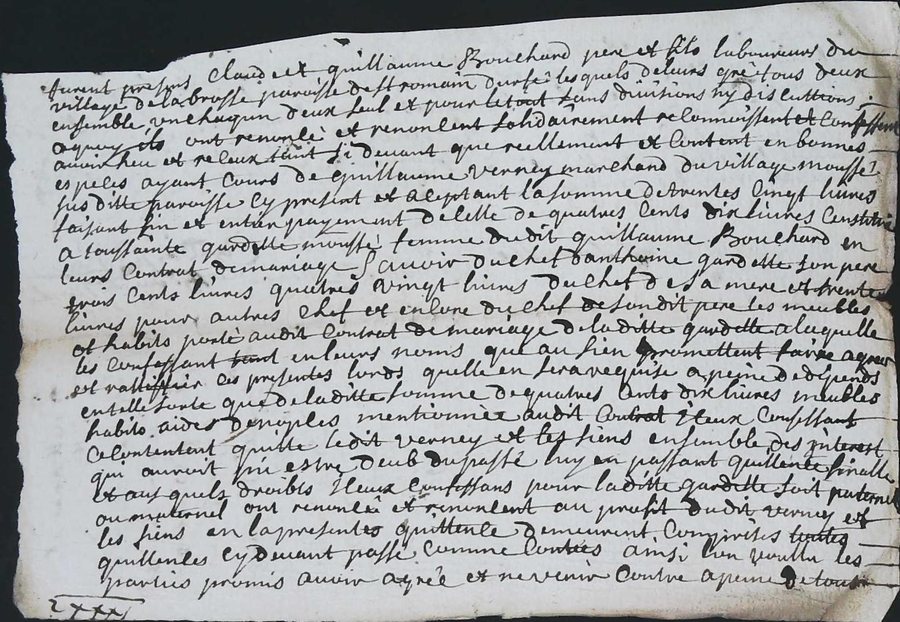 furent presens Claude et guillaume Bouchard pere et fils laboureurs du
village de la brosse paroisse de st romain durfé lesquels de leurs gré tous deux
ensemble un chaqun deux seul et pour le tout sans divisions ny discutions
a quoy ils ont renoncé et renoncent solidairement reconnoissent et confessent
avoir heu et receux tant si devant que reellement et content en bonnes
especes ayant cours de guillaume verney marchand du village moussé
susditte paroisse cy present et aceptant la somme de trentes cingt livres
faisant fin et entier payement de celle de quatres cents dix livres constituée
a toussainte gardette moussé femme dudit guillaume Bouchard en
leurs contrat de mariage sauvoir du chef danthoine gardette son pere
trois cents livres quatres vingt livres du chef de sa mere et trente
livres pour autres chef et encore du chef de sondit pere les meubles
et habits porté audit contrat de mariage de laditte gardette a laquelle
les confessant tant en leurs noms que au sien promettent faire agreer
et rattiffier ces presentes lords quelle en sera requise a peine de depends
en telle sorte que de laditte somme de quatres cents dix livres meubles
habits aides de noples mentionnée audit contrat iceux confessant
ce contentent quitte ledit verney et les siens ensemble des interest
qui auroit pu estre deub du passé luy en passant quittence finalle
et aus quels droibts iceux confessans pour laditte gardette soit paternel
ou maternel ont renoncé et renoncent au profit dudit verney et
les siens en la presentes quittence demeurent comprises toutes
quittences cy devant passé comme contées ainsi lon voullu les
parties promis avoir agrée et ne venir contre a peine de tous